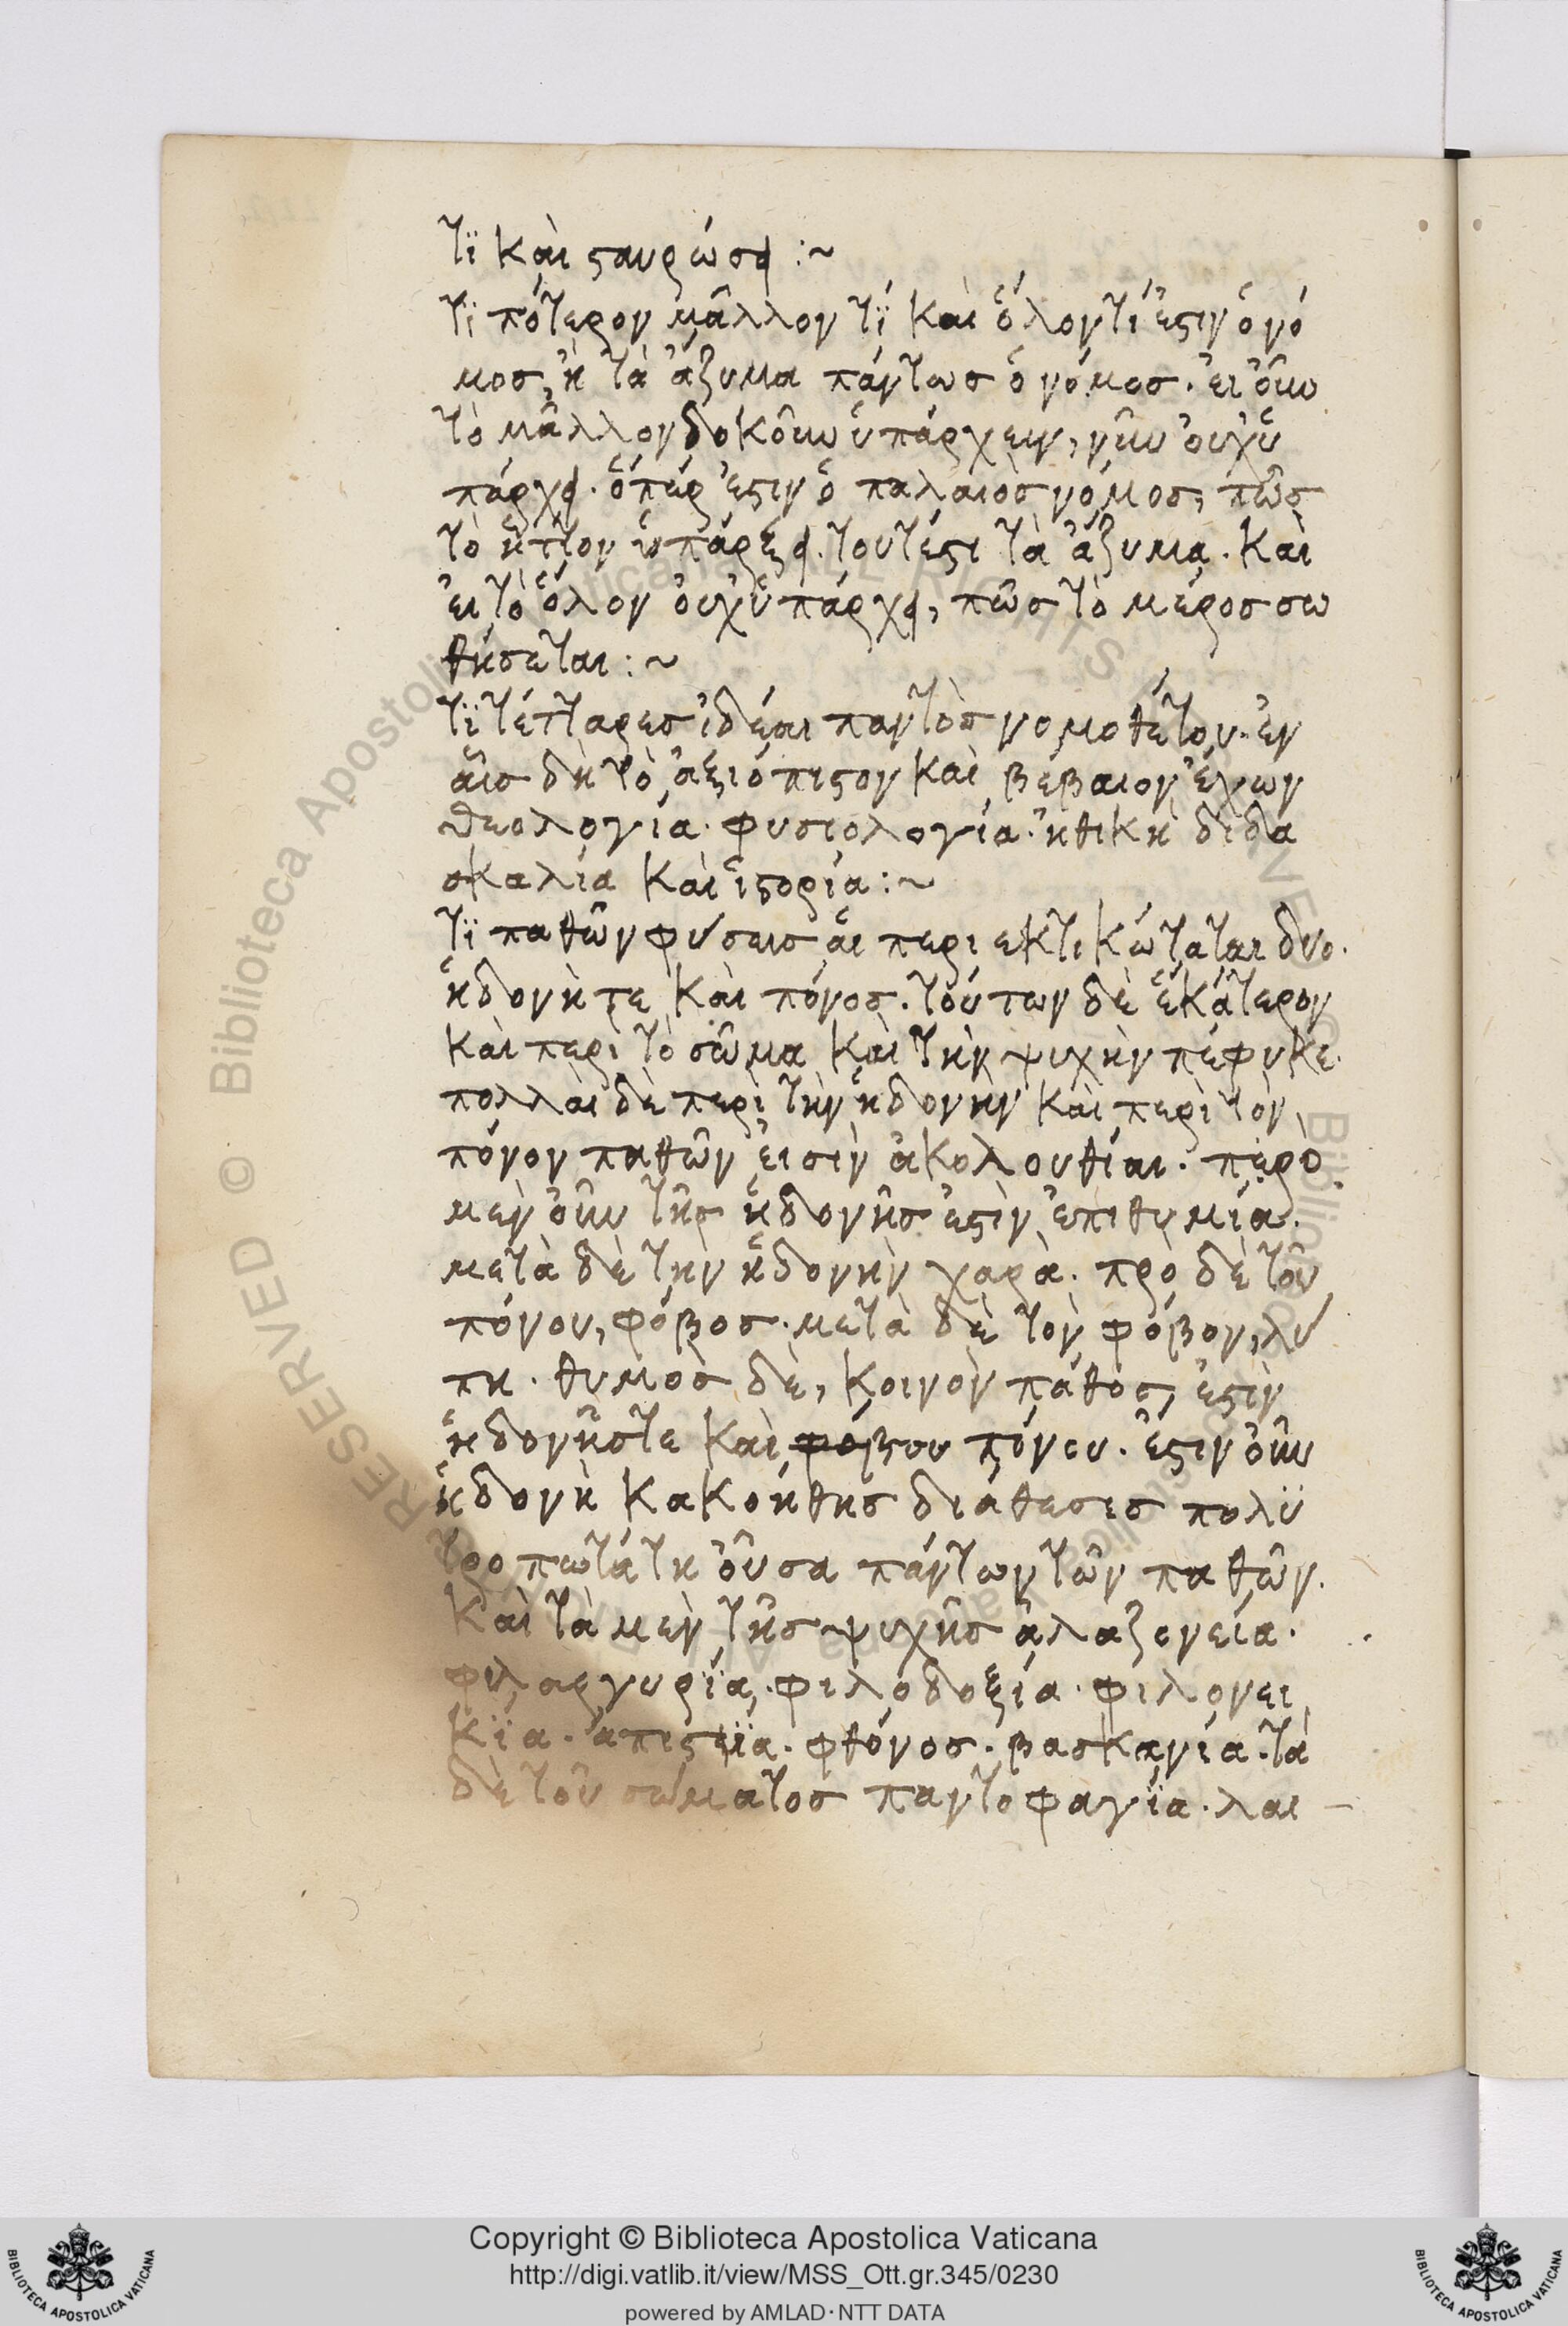 τϊ καὶ σταυρώσει :~
τϊ πότερον μᾶλλον τΐ καὶ ὅλον τί ἐστιν ὁ νό
μοσ, ἢ τὰ ἄζυμα πάντωσ ὁ νόμοσ. εἰ οὖν
τὸ μᾶλλον δοκοῦν ὑπάρχειν, νῦν οὐχ ὑ
πάρχει. ὅπέρ ἐστιν ὁ παλαιὸσ νόμοσ, πῶσ
τὸ ἧττον ὑπάρξει. τουτέστι τὰ ἄζυμα. καὶ
εἰ τὸ ὅλον οὐχ ὑπάρχει, πῶσ τὸ μέροσ σω
θήσεται :~
τϊ τέτταρεσ ἰδέαι παντὸσ νομοθέτου. ἐν
αἷσ δὴ τὸ ἀξιόπιστον καὶ βέβαιον ἔχων
θεολογία. φυσιολογία. ἠθικὴ διδα
σκαλία καὶ ἱστορία :~
τϊ παθῶν φύσεισ αἱ περιεκτικώταται δυο.
ἡδονή τε καὶ πόνοσ. τούτων δὲ ἑκάτερον
καὶ περὶ τὸ σῶμα καὶ τὴν ψυχὴν πέφυκε.
πολλαὶ δὲ περὶ τὴν ἡδονὴν καὶ περὶ τὸν
πόνον παθῶν εἰσὶν ἀκολουθίαι. πρὸ
μὲν οὖν τῆσ ἡδονῆσ ἐστὶν ἐπιθυμία.
μετὰ δὲ τὴν ἡδονὴν χαρὰ. πρὸ δὲ τοῦ
πόνου, φόβοσ. μετὰ δὲ τὸν φόβον, λύ
πη. θυμὸσ δὲ, κοινὸν πάθοσ, ἐστὶν
ἡδονῆστε καὶ φόβου πόνου. ἔστιν οὖν
ἡδονὴ κακοήθησ διάθεσισ πολϋ
τροπωτάτη οὖσα πάντων τῶν παθῶν.
καὶ τὰ μὲν τῆσ ψυχῆσ ἀλαζονεία.
φιλαργυρΐα. φιλοδοξία. φιλονει
κΐα. ἀπιστϊα. φθόνοσ. βασκανία. τὰ
δὲ τοῦ σώματοσ παντοφαγΐα. λαι
Copyright © Biblioteca Apostolica Vaticana
http://digi.vatlib.it/view/MSS_Ott.gr.345/0230
powered by AMLAD·NTT DATA